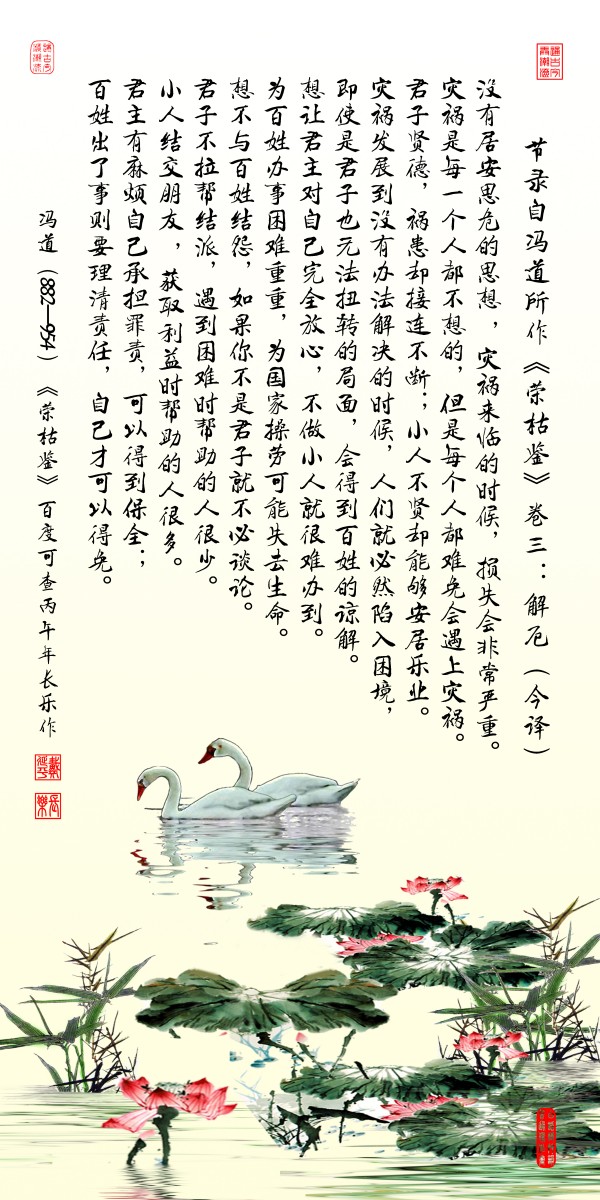 节录自冯道所作《荣枯鉴》卷三：解厄（今译）
没有居安思危的思想，灾祸来临的时候，损失会非常严重。
灾祸是每一个人都不想的，但是每个人都难免会遇上灾祸。
君子贤德，祸患却接连不断；小人不贤却能够安居乐业。
灾祸发展到没有办法解决的时候，人们就必然陷入困境，
即使是君子也无法扭转的局面，会得到百姓的谅解。
想让君主对自己完全放心，不做小人就很难办到。
为百姓办事困难重重，为国家操劳可能失去生命。
想不与百姓结怨，如果你不是君子就不必谈论。
君子不拉帮结派，遇到困难时帮助的人很少。
小人结交朋友，获取利益时帮助的人很多。
君主有麻烦自己承担罪责，可以得到保全；
百姓出了事则要理清责任，自己才可以得免。
冯道（882—954）《荣枯鉴》百度可查丙午年长乐作